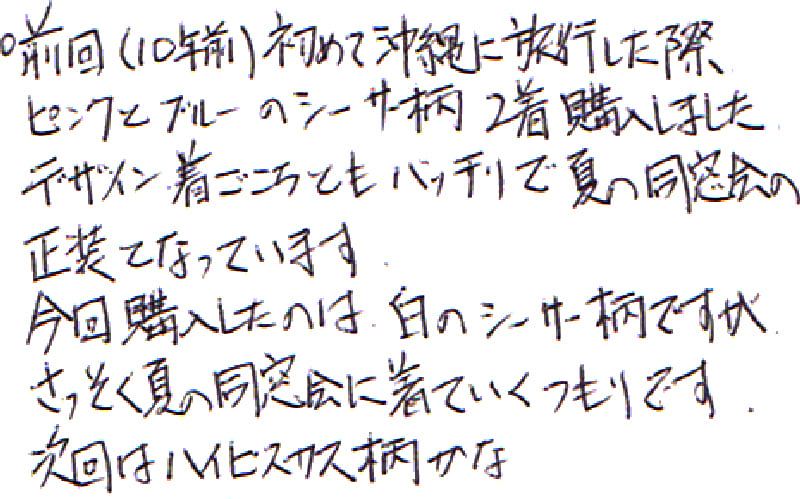 ○前回(10年前)初めて沖縄に旅行した際、
ピンクとブルーのシーサー柄 2着購入しました
デザイン着ごこちともバッチリで夏の同窓会の
正装となっています.
今回購入したのは、白のシーサー柄ですが
さっそく夏の同窓会に着ていくつもりです.
次回はハイビスカス柄かな